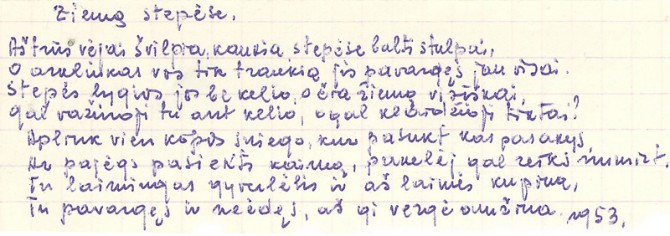 Žiemą stepėse.
Aštrūs vėjai švilpia, kaukia stepėse balti stulpai,
O arkliukas vos tik traukia, jis pavargęs jau visai.
Stepės lygios, jos be kelio, o čia žiemą visiškai,
Gal važiuoji tu ant kelio, o gal klaidžioji tiktai?
Aplink vien kopos sniego, kur pasukt kas pasakys,
Ar pajėgs pasiekti kaimą, pakelėj gal reiks numirt.
Tu laimingas gyvulėlis ir aš laimės kupina,
Tu pavargęs ir neėdęs, aš gi vergė amžina. 1953.